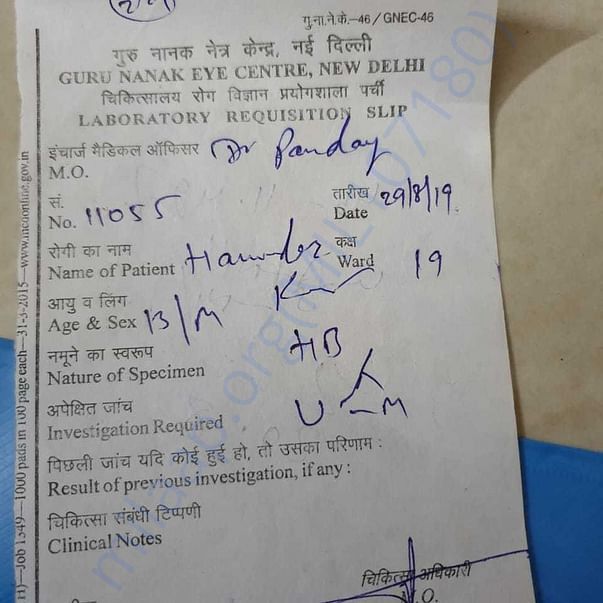 गु.ना.ने.के.-46 / GNEC-46
गुरु नानक नेत्र केन्द्र, नई दिल्ली
GURU NANAK EYE CENTRE, NEW DELHI
चिकित्सालय रोग विज्ञान प्रयोगशाला पर्ची
LABORATORY REQUISITION SLIP
इंचार्ज मैडिकल ऑफिसर Dr Panday
M.O.
सं. तारीख
No. 11055 Date 29/8/19
रोगी का नाम कक्ष
Name of Patient Ward 19
आयु व लिंग
Age & Sex 13/M
नमूने का स्वरूप HB
Nature of Specimen
अपेक्षित जांच
Investigation Required
पिछली जांच यदि कोई हुई हो, तो उसका परिणाम :
Result of previous investigation, if any :
चिकित्सा संबंधी टिप्पणी
Clinical Notes
चिकित्सा अधिकारी
M.O.
Job 1349—1000 pads in 100 page each—31-3-2015—www.incdonline.gov.in